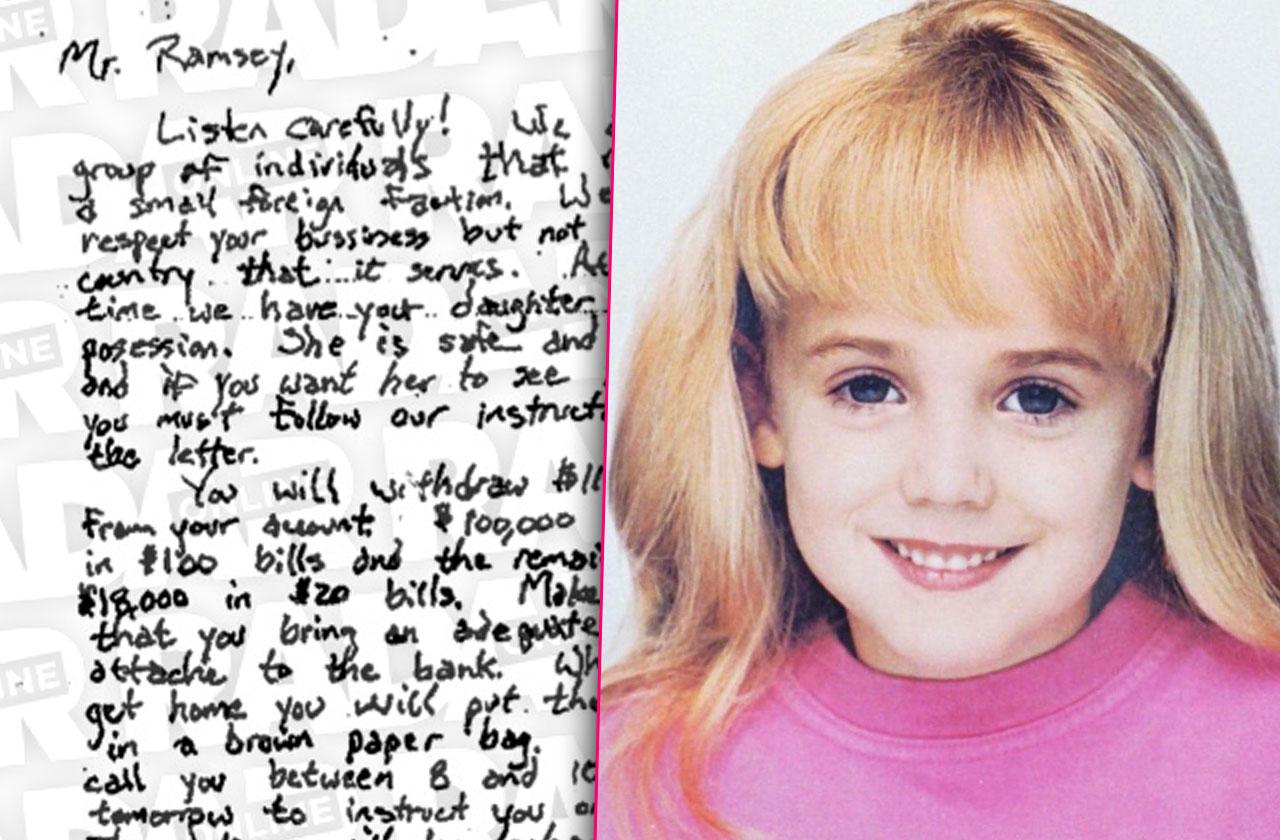 Mr. Ramsey,
Listen carefully! We
group of individuals that
a small foreign faction. We
respect your bussiness but not
country that it serves. At
time we have your daughter
posession. She is safe and
and if you want her to see
you must follow our instruct
the letter.
You will withdraw $11
from your account. $100,000
in $100 bills and the remai
$18,000 in $20 bills. Make
that you bring an adequate
attache to the bank. Wh
get home you will put the
in a brown paper bag.
call you between 8 and 10
tomorrow to instruct you on